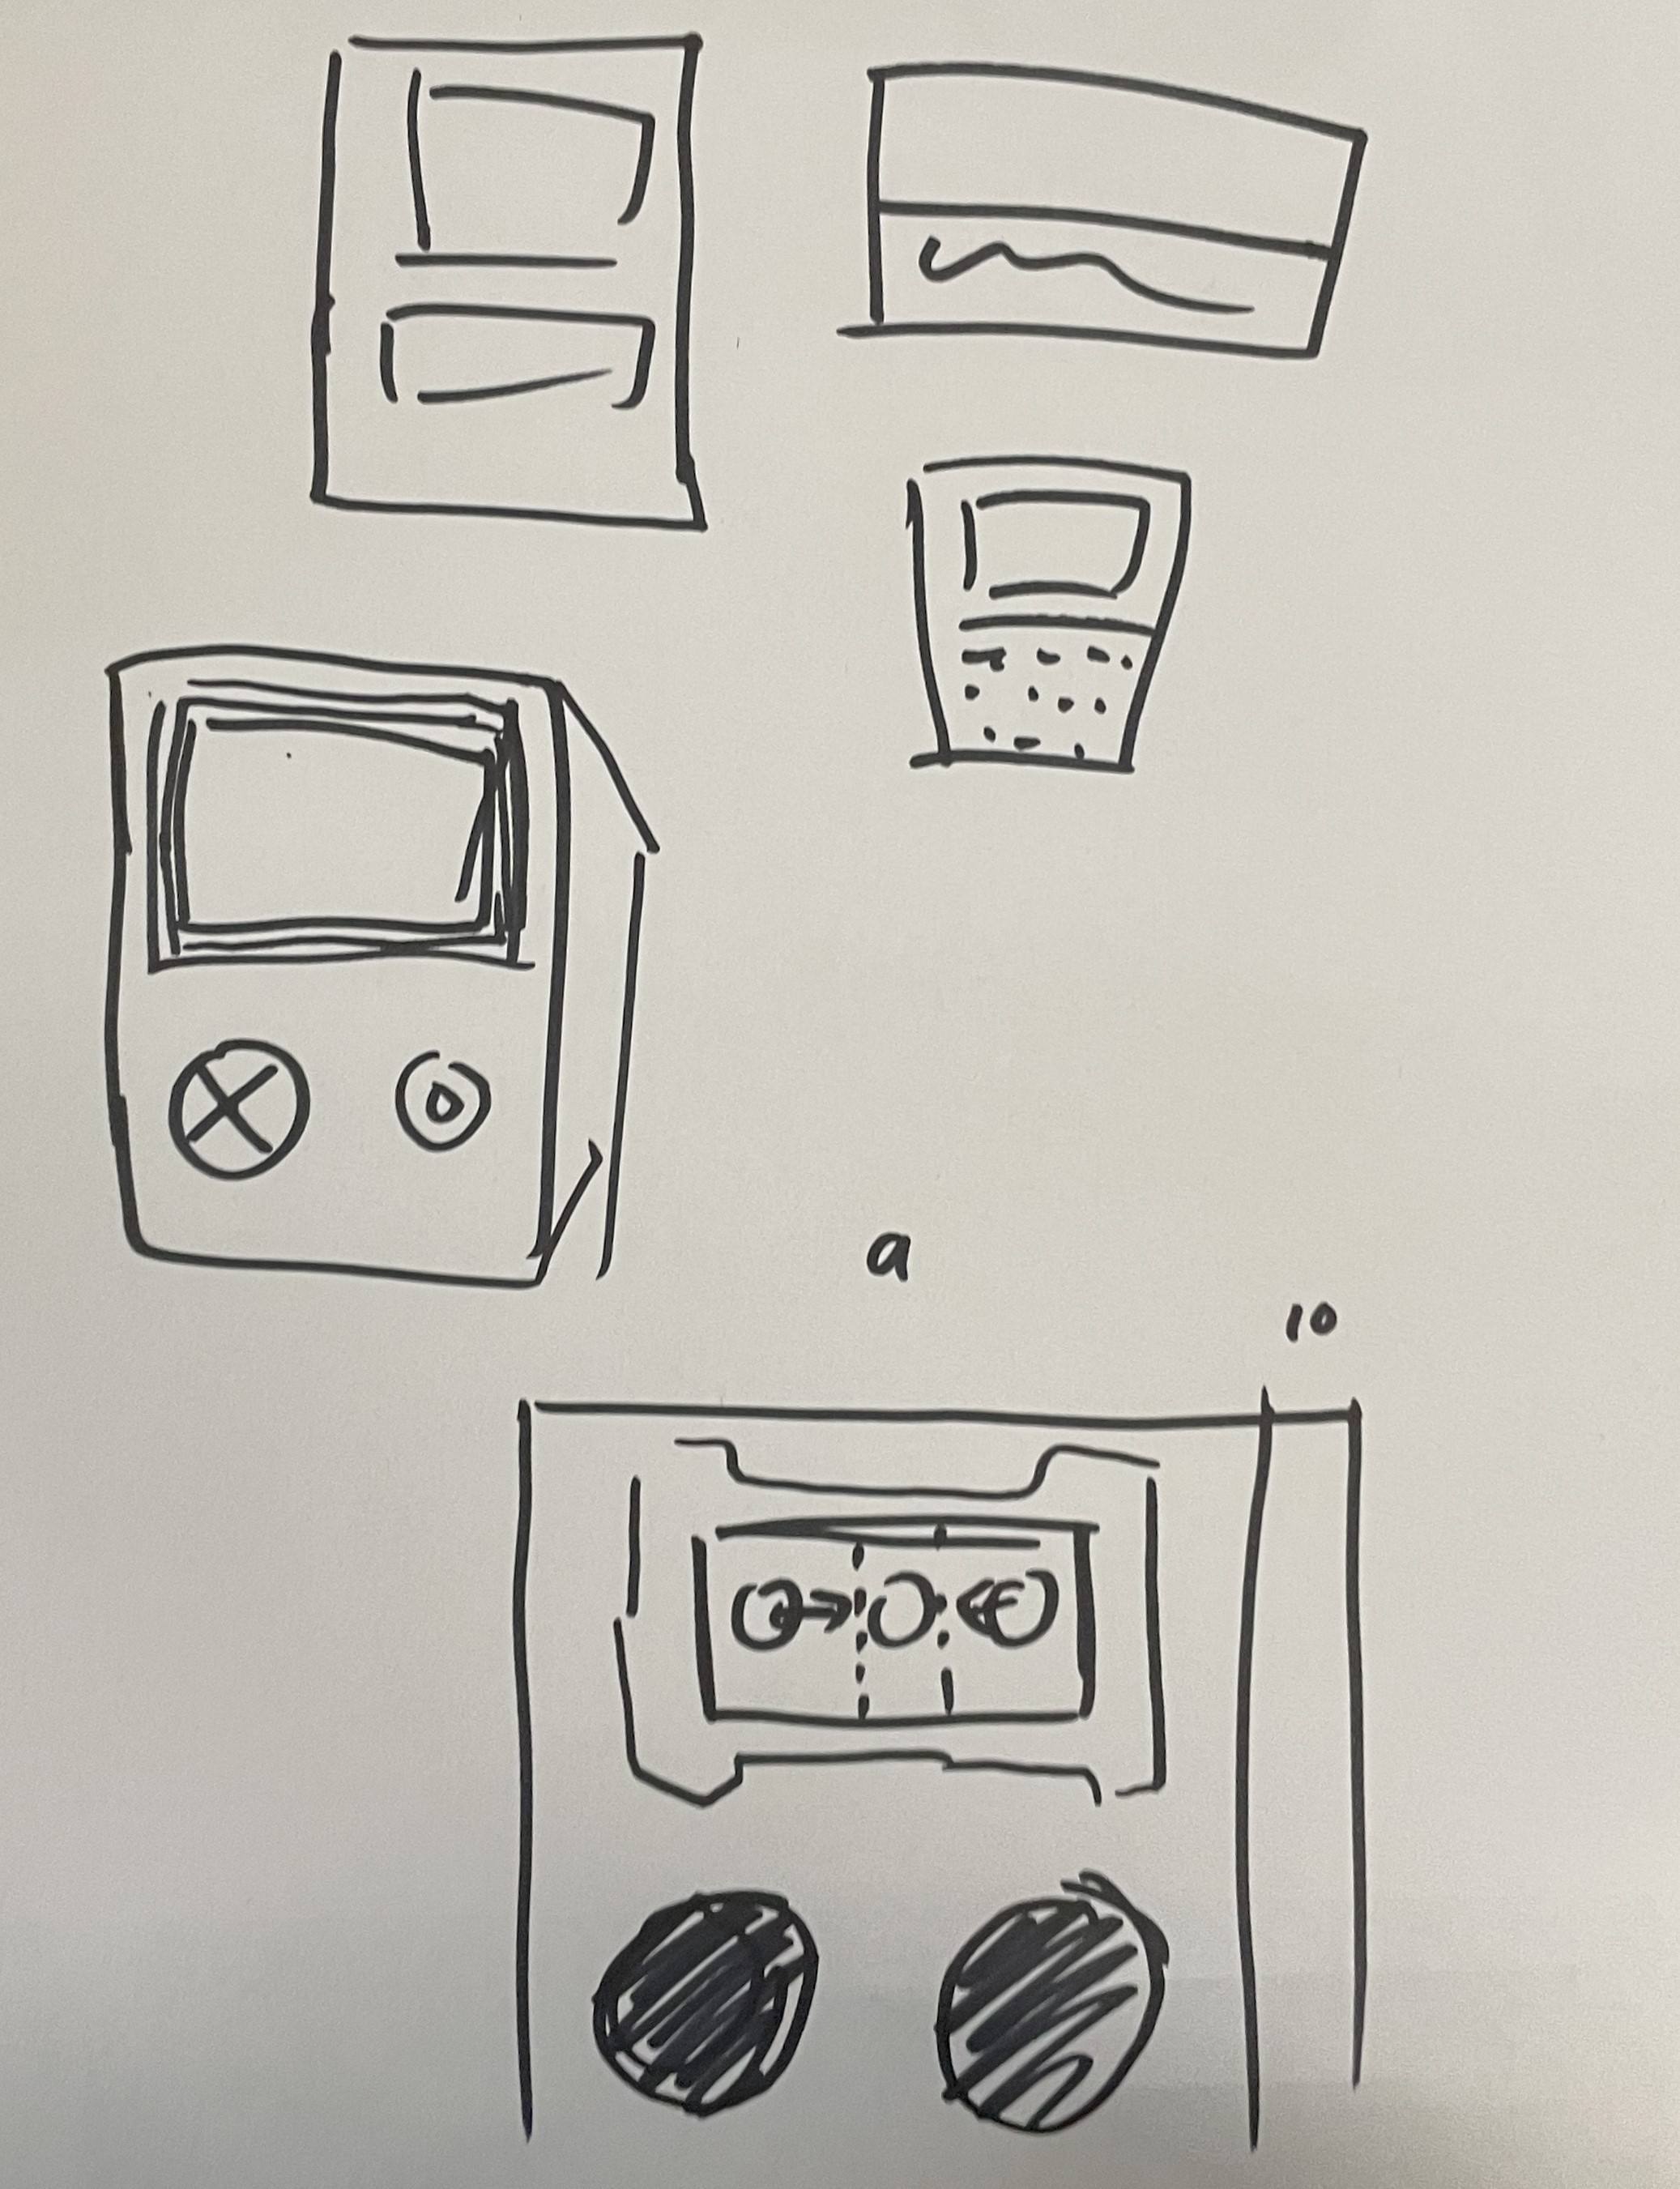 a
10